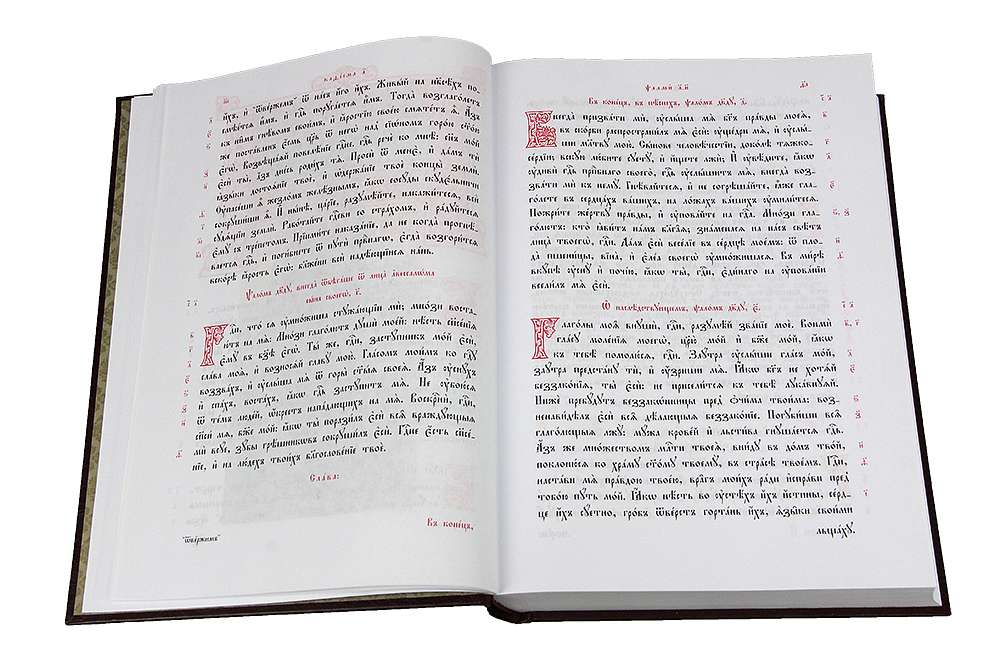 каѳі́сма а҃
и҆́хъ, и҆ ѿве́ржемъ ѿ на́съ и҆́го и҆́хъ. Живы́й на нб҃сѣ́хъ по-
смѣе́тся и҆̀мъ, и҆ гдⷭ҇ь порꙋга́ется и҆̀мъ. Тогда̀ возгл҃етъ
къ ни̑мъ гнѣ́вомъ свои́мъ, и҆ ꙗ҆́ростїю свое́ю смѧте́тъ ѧ҆̀. А҆́зъ
же поста́вленъ є҆́смь цр҃ь ѿ негѡ̀ над̾ сїѡ́номъ горо́ю ст҃о́ю
є҆гѡ̀. Возвѣща́ѧй повелѣ́нїе гдⷭ҇не, гдⷭ҇ь речѐ ко мнѣ̀: сн҃ъ мо́й
є҆сѝ ты̀, а҆́зъ дне́сь роди́хъ тѧ̀. Просѝ ѿ менє̀, и҆ да́мъ тѝ
ꙗ҆зы́ки достоѧ́нїе твоѐ, и҆ ѡ҆держа́нїе твоѐ концы̀ землѝ.
Оу҆пасе́ши ѧ҆̀ жезло́мъ желѣ́знымъ, ꙗ҆́кѡ сосꙋ́ды скꙋде́льничи
сокрꙋши́ши ѧ҆̀. И҆ нн҃ѣ, ца́рїе, разꙋмѣ́йте, накажи́тесѧ, всѝ
сꙋдѧ́щїи землѝ. Рабо́тайте гдⷭ҇ви со стра́хомъ, и҆ ра́дꙋйтесѧ
є҆мꙋ̀ съ тре́петомъ. Прїими́те наказа́нїе, да не когда̀ прогнѣ́-
ваетсѧ гдⷭ҇ь, и҆ поги́бнете ѿ пꙋтѝ првⷣнагѡ, є҆гда̀ возгори́тсѧ
вско́рѣ ꙗ҆́рость є҆гѡ̀: бл҃же́ни всѝ надѣ́ющїисѧ на́нь.
Ѱало́мъ дв҃дꙋ, внегда̀ ѿбѣга́ше ѿ лица̀ а҆вессалѡ́ма
сы́на своегѡ̀, г҃.
Гдⷭ҇и, что́ сѧ ᲂу҆мно́жиша стꙋжа́ющїи мѝ; мно́зи воста-
ю́тъ на мѧ̀. Мно́зи глаго́лютъ дꙋшѝ мое́й: нѣ́сть сп҃се́нїѧ
є҆мꙋ̀ въ бз҃ѣ є҆гѡ̀. Ты́ же, гдⷭ҇и, застꙋ́пникъ мо́й є҆сѝ,
сла́ва моѧ̀, и҆ вознося́й главꙋ̀ мою̀. Гла́сомъ мои́мъ ко гдⷭ҇ꙋ
воззва́хъ, и҆ ᲂу҆слы́ша мѧ̀ ѿ горы̀ ст҃ы́ѧ своеѧ̀. А҆́зъ ᲂу҆снꙋ́хъ
и҆ спа́хъ, воста́хъ, ꙗ҆́кѡ гдⷭ҇ь застꙋ́питъ мѧ̀. Не ᲂу҆бою́сѧ
ѿ те́мъ люде́й, ѡ҆́крестъ напа́дающихъ на мѧ̀. Воскрⷭ҇нѝ, гдⷭ҇и,
сп҃си́ мѧ, бж҃е мо́й: ꙗ҆́кѡ ты̀ порази́лъ є҆сѝ всѧ̑ враждꙋ́ющыѧ
мѝ всꙋ́е, зꙋ́бы грѣ́шникѡвъ сокрꙋши́лъ є҆сѝ. Гдⷭ҇не є҆́сть сп҃се́-
нїе, и҆ на лю́дехъ твои́хъ благослове́нїе твоѐ.
Сла́ва:
Въ коне́цъ,
ѿве́ржимъ
Ѱалмы̀ д҃ и҆
Въ коне́цъ, въ пѣ́снехъ, ѱало́мъ дв҃дꙋ, д҃.
Внегда̀ призва́ти мѝ, ᲂу҆слы́ша мѧ̀ бг҃ъ пра́вды моеѧ̀,
въ ско́рби распространи́лъ мѧ̀ є҆сѝ: ᲂу҆ще́дри мѧ̀, и҆ ᲂу҆слы́-
ши мл҃твꙋ мою̀. Сы́нове человѣ́честїи, доко́лѣ тѧжко-
се́рдїи; вскꙋ́ю лю́бите сꙋетꙋ̀, и҆ и҆́щете лжѝ; И҆ ᲂу҆вѣ́дите, ꙗ҆́кѡ
ᲂу҆дивѝ гдⷭ҇ь прпⷣбнаго своего̀, гдⷭ҇ь ᲂу҆слы́шитъ мѧ̀, внегда̀ воз-
зва́ти мѝ къ немꙋ̀. Гнѣ́вайтесѧ, и҆ не согрѣша́йте, ꙗ҆̀же гла-
го́лете въ сердца́хъ ва́шихъ, на ло́жахъ ва́шихъ ᲂу҆мили́тесѧ.
Пожри́те же́ртвꙋ пра́вды, и҆ ᲂу҆пова́йте на гдⷭ҇а. Мно́зи гла-
го́лютъ: кто̀ ꙗ҆ви́тъ на́мъ бл҃га́ѧ; зна́менасѧ на на́съ свѣ́тъ
лица̀ твоегѡ̀, гдⷭ҇и. Да́лъ є҆сѝ весе́лїе въ се́рдцѣ мое́мъ: ѿ пло-
да̀ пшени́цы, вїна̀, и҆ є҆ле́а своегѡ̀ ᲂу҆мно́жишасѧ. Въ ми́рѣ
вкꙋ́пѣ ᲂу҆снꙋ̀ и҆ почі́ю, ꙗ҆́кѡ ты̀, гдⷭ҇и, є҆ди́наго на ᲂу҆пова́нїи
всели́лъ мѧ̀ є҆сѝ.
Ѡ҆ наслѣ́дствꙋющемъ, ѱало́мъ дв҃дꙋ, є҃.
Глаго́лы моѧ̑ внꙋшѝ, гдⷭ҇и, разꙋмѣ́й зва́нїе моѐ. Вонмѝ
гла́сꙋ моле́нїѧ моегѡ̀, цр҃ю̀ мо́й и҆ бж҃е мо́й, ꙗ҆́кѡ
къ тебѣ̀ помолю́сѧ, гдⷭ҇и. Заꙋ́тра ᲂу҆слы́ши гла́съ мо́й,
заꙋ́тра предста́нꙋ тѝ, и҆ ᲂу҆́зриши мѧ̀. Ꙗ҆́кѡ бг҃ъ не хотѧ́й
беззако́нїѧ, ты̀ є҆сѝ: не присели́тсѧ къ тебѣ̀ лꙋка́внꙋѧй.
Нижѐ пребꙋ́дꙋтъ беззакѡ́нницы пред̾ ѻ҆чи́ма твои́ма: воз-
ненави́дѣлъ є҆сѝ всѧ̑ дѣ́лающыѧ беззако́нїе. Погꙋби́ши всѧ̑
глаго́лющыѧ лжꙋ̀: мꙋ́жа крове́й и҆ льсти́ва гнꙋша́етсѧ гдⷭ҇ь.
А҆́зъ же мно́жествомъ млⷭ҇ти твоеѧ̀, вни́дꙋ въ до́мъ тво́й,
поклоню́сѧ ко хра́мꙋ ст҃о́мꙋ твоемꙋ̀, въ стра́сѣ твое́мъ. Гдⷭ҇и,
наста́ви мѧ̀ пра́вдою твое́ю, вра̑гъ мои́хъ ра́ди и҆спра́ви пред̾
тобо́ю пꙋ́ть мо́й. Ꙗ҆́кѡ нѣ́сть во ᲂу҆стѣ́хъ и҆́хъ и҆́стины, се́рд-
це и҆́хъ сꙋ́етно, гро́бъ ѿве́рстъ горта́нь и҆́хъ, ѧ҆зы̑ки свои́ми
льща́хꙋ.